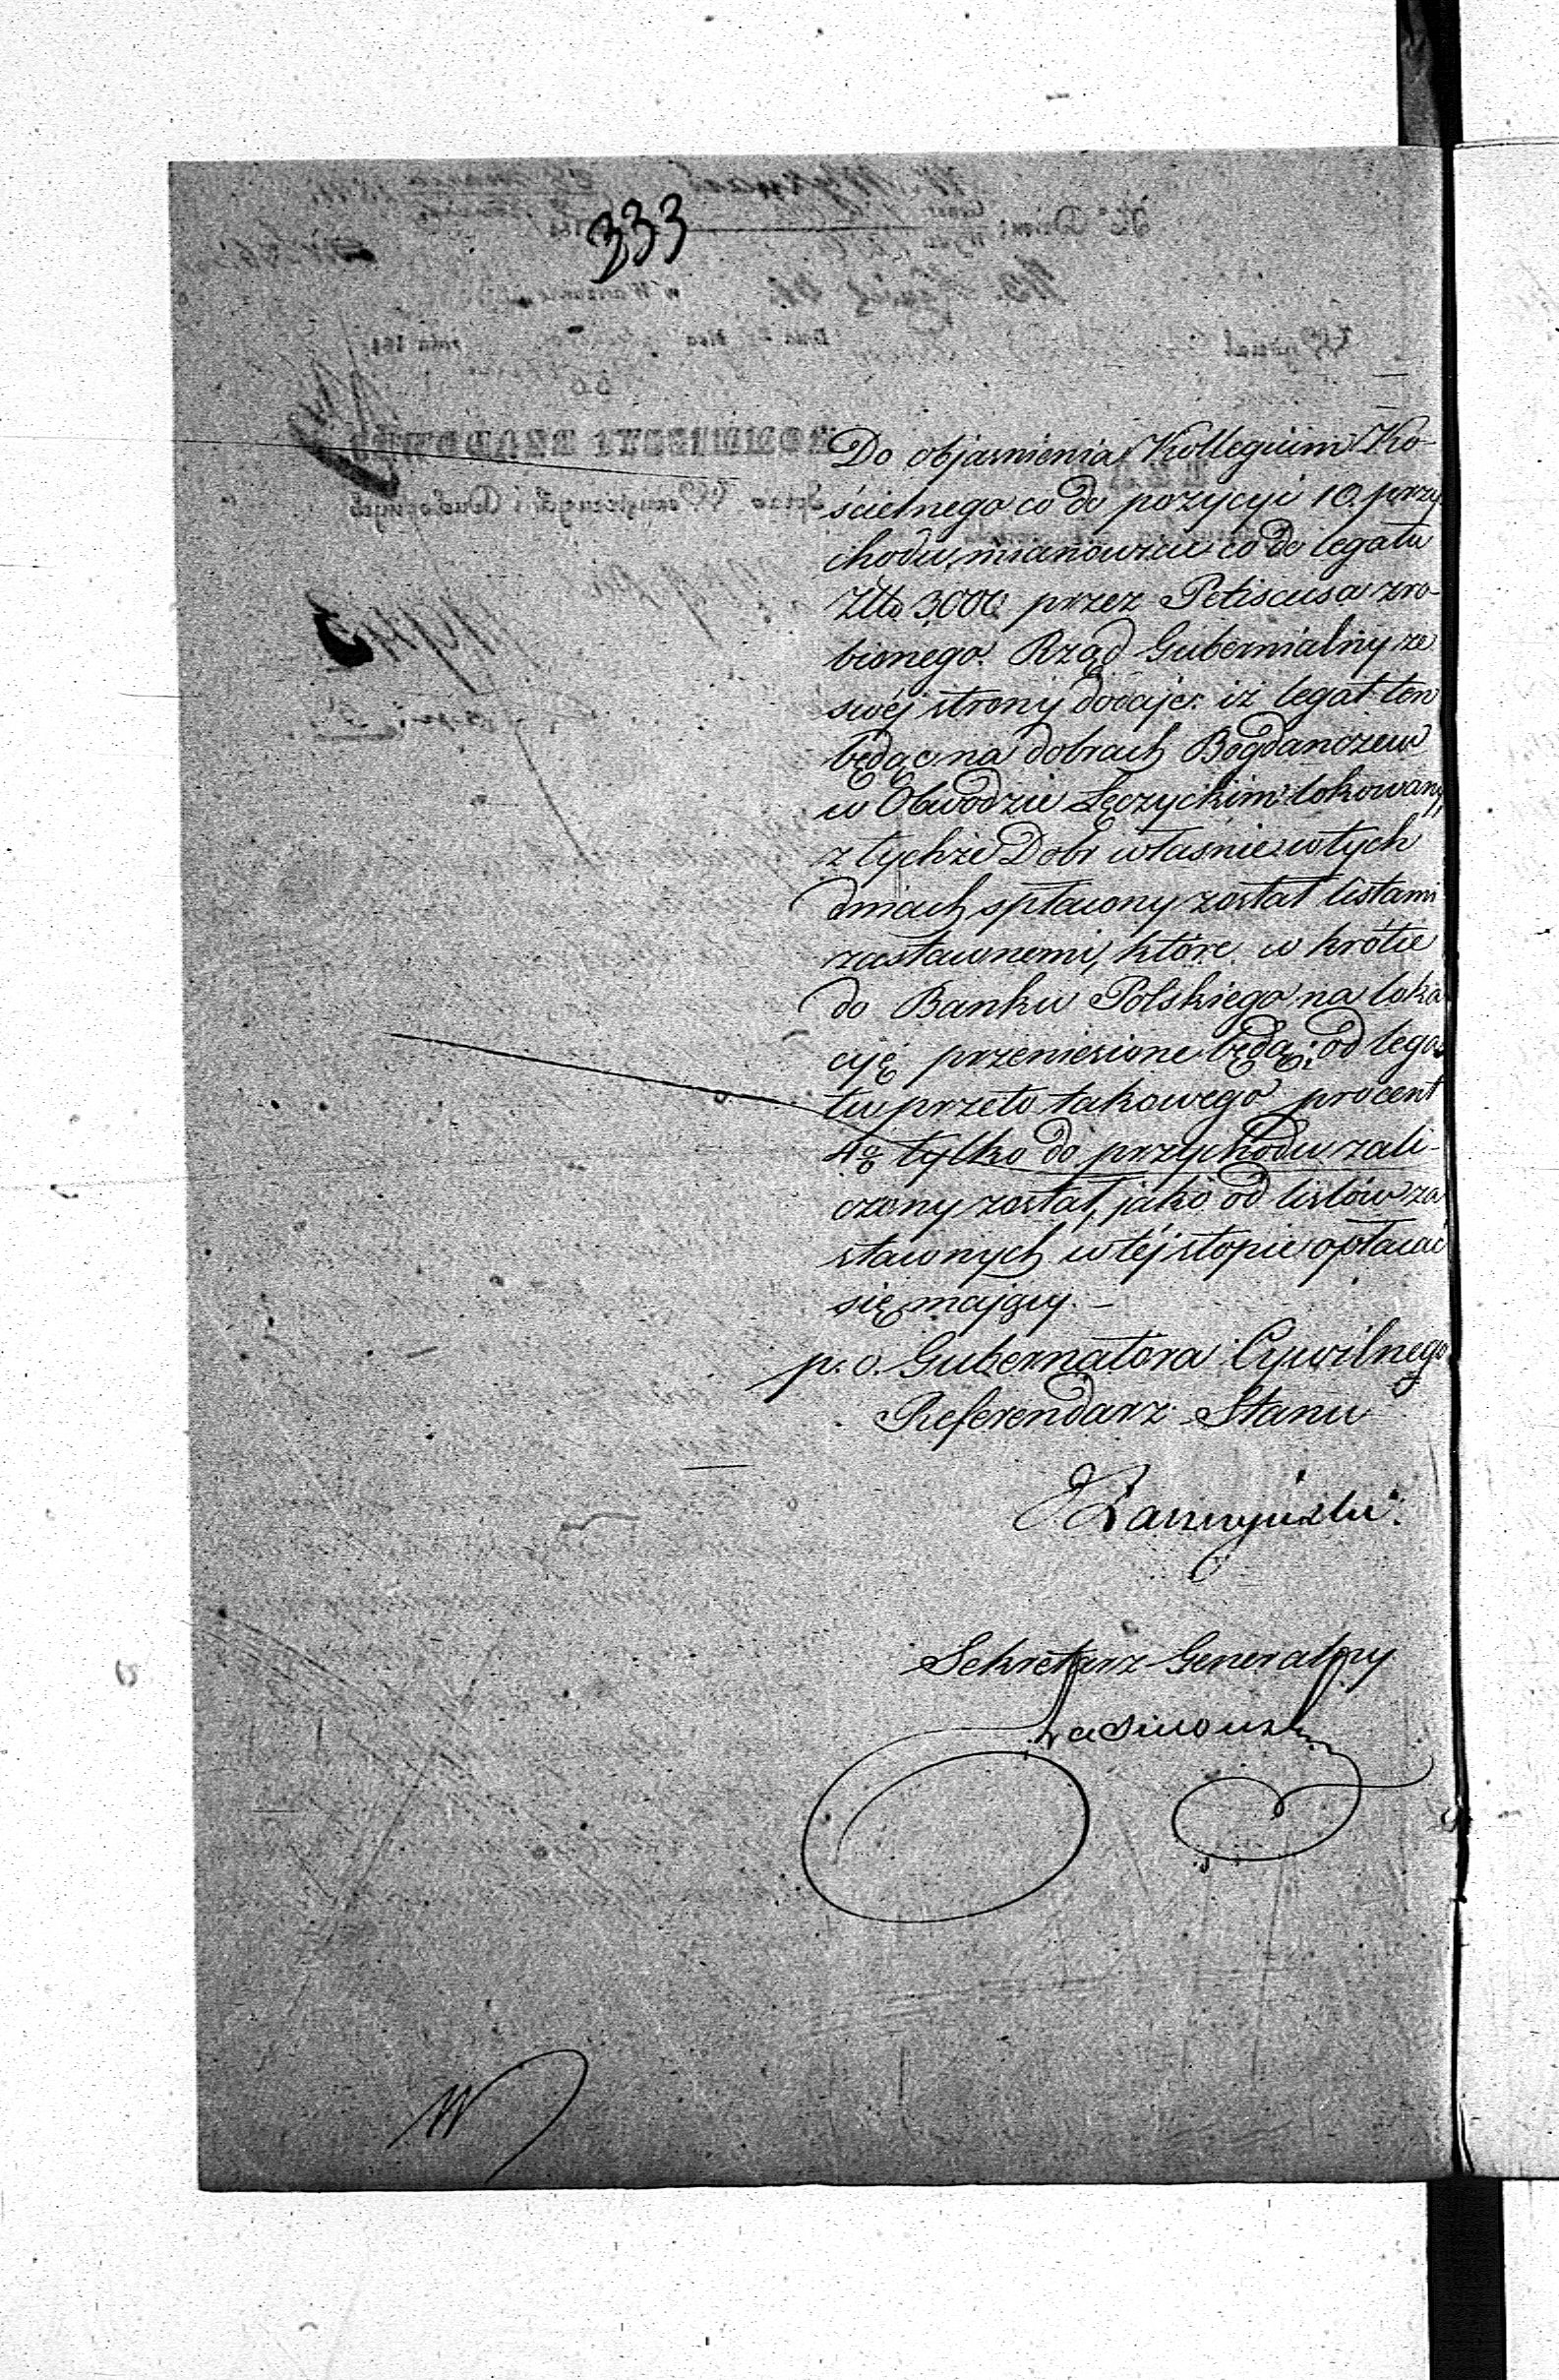 333
Do objaśnienia Kollegium Ko-
ścielnego co do pozycyi 10. przy
chodu, mianowicie co do legatu
Złłp 3000 przez Petiscusa zro-
bionego. Rząd Gubernialny ze
swéj strony dodaje: iż legat ten
będąc na dobrach Bogdanczew
w Obwodzie Łęczyckim lokowany,
z tychże Dobr właśnie w tych
dniach spłacony został listami
zastawnemi, które w krótce
do Banku Polskiego na loka
cyję przeniesione będą; od lega
tu przeto takowego procent
4% tylko do przychodu zali-
czony został, jako od listów za
stawnych w téj stopie opłacać
się mający. –
p. o. Gubernatora Cywilnego
Referendarz Stanu
Sekretarz Generalny